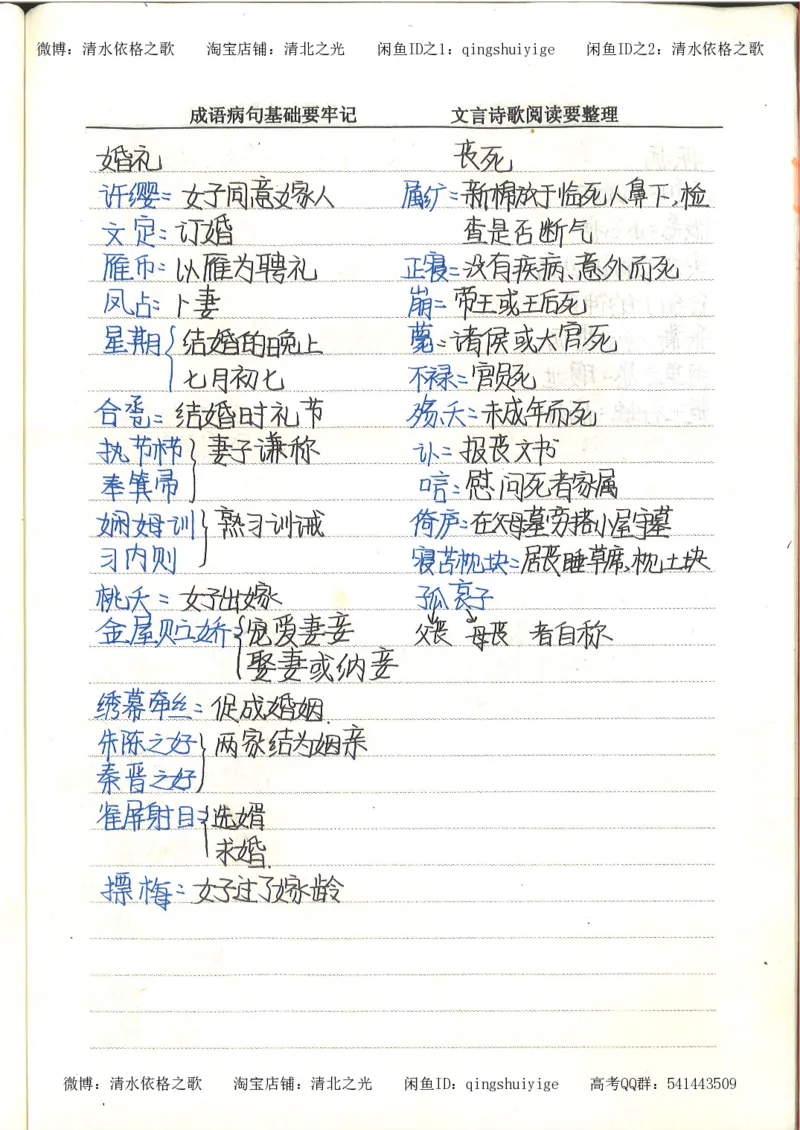 微博：清水依格之歌 淘宝店铺：清北之光 闲鱼ID之1：qingshuiyige 闲鱼ID之2：清水依格之歌
成语病句基础要牢记 文言诗歌阅读要整理
婚礼
许缨=女子同意嫁人
文定：订婚
雁币：以雁为聘礼
凤占：卜妻
星期{结婚的晚上
七月初七
合卺=结婚时礼节
执节栉}妻子谦称
奉箕帚
娴姆训}熟习训诫
习内则
桃夭=女子出嫁
金屋贮娇{宠爱妻妾
娶妻或纳妾
绣幕牵丝=促成婚姻.
朱陈之好}两家结为姻亲
秦晋之好
雀屏射目{选婿
求婚.
摽梅=女子过了嫁龄
丧死
属纩=新棉放于临死人鼻下,检
查是否断气
正寝=没有疾病、意外而死
崩=帝王或王后死
薨=诸侯或大官死
不禄=官员死
殇夭=未成年而死
讣=报丧文书
唁:慰问死者家属
倚庐:在父母墓旁搭小屋守墓
寝苫枕块=居丧睡草席,枕土块
孤哀子
父丧 母丧 者自称
微博：清水依格之歌 淘宝店铺：清北之光 闲鱼ID：qingshuiyige 高考QQ群：541443509